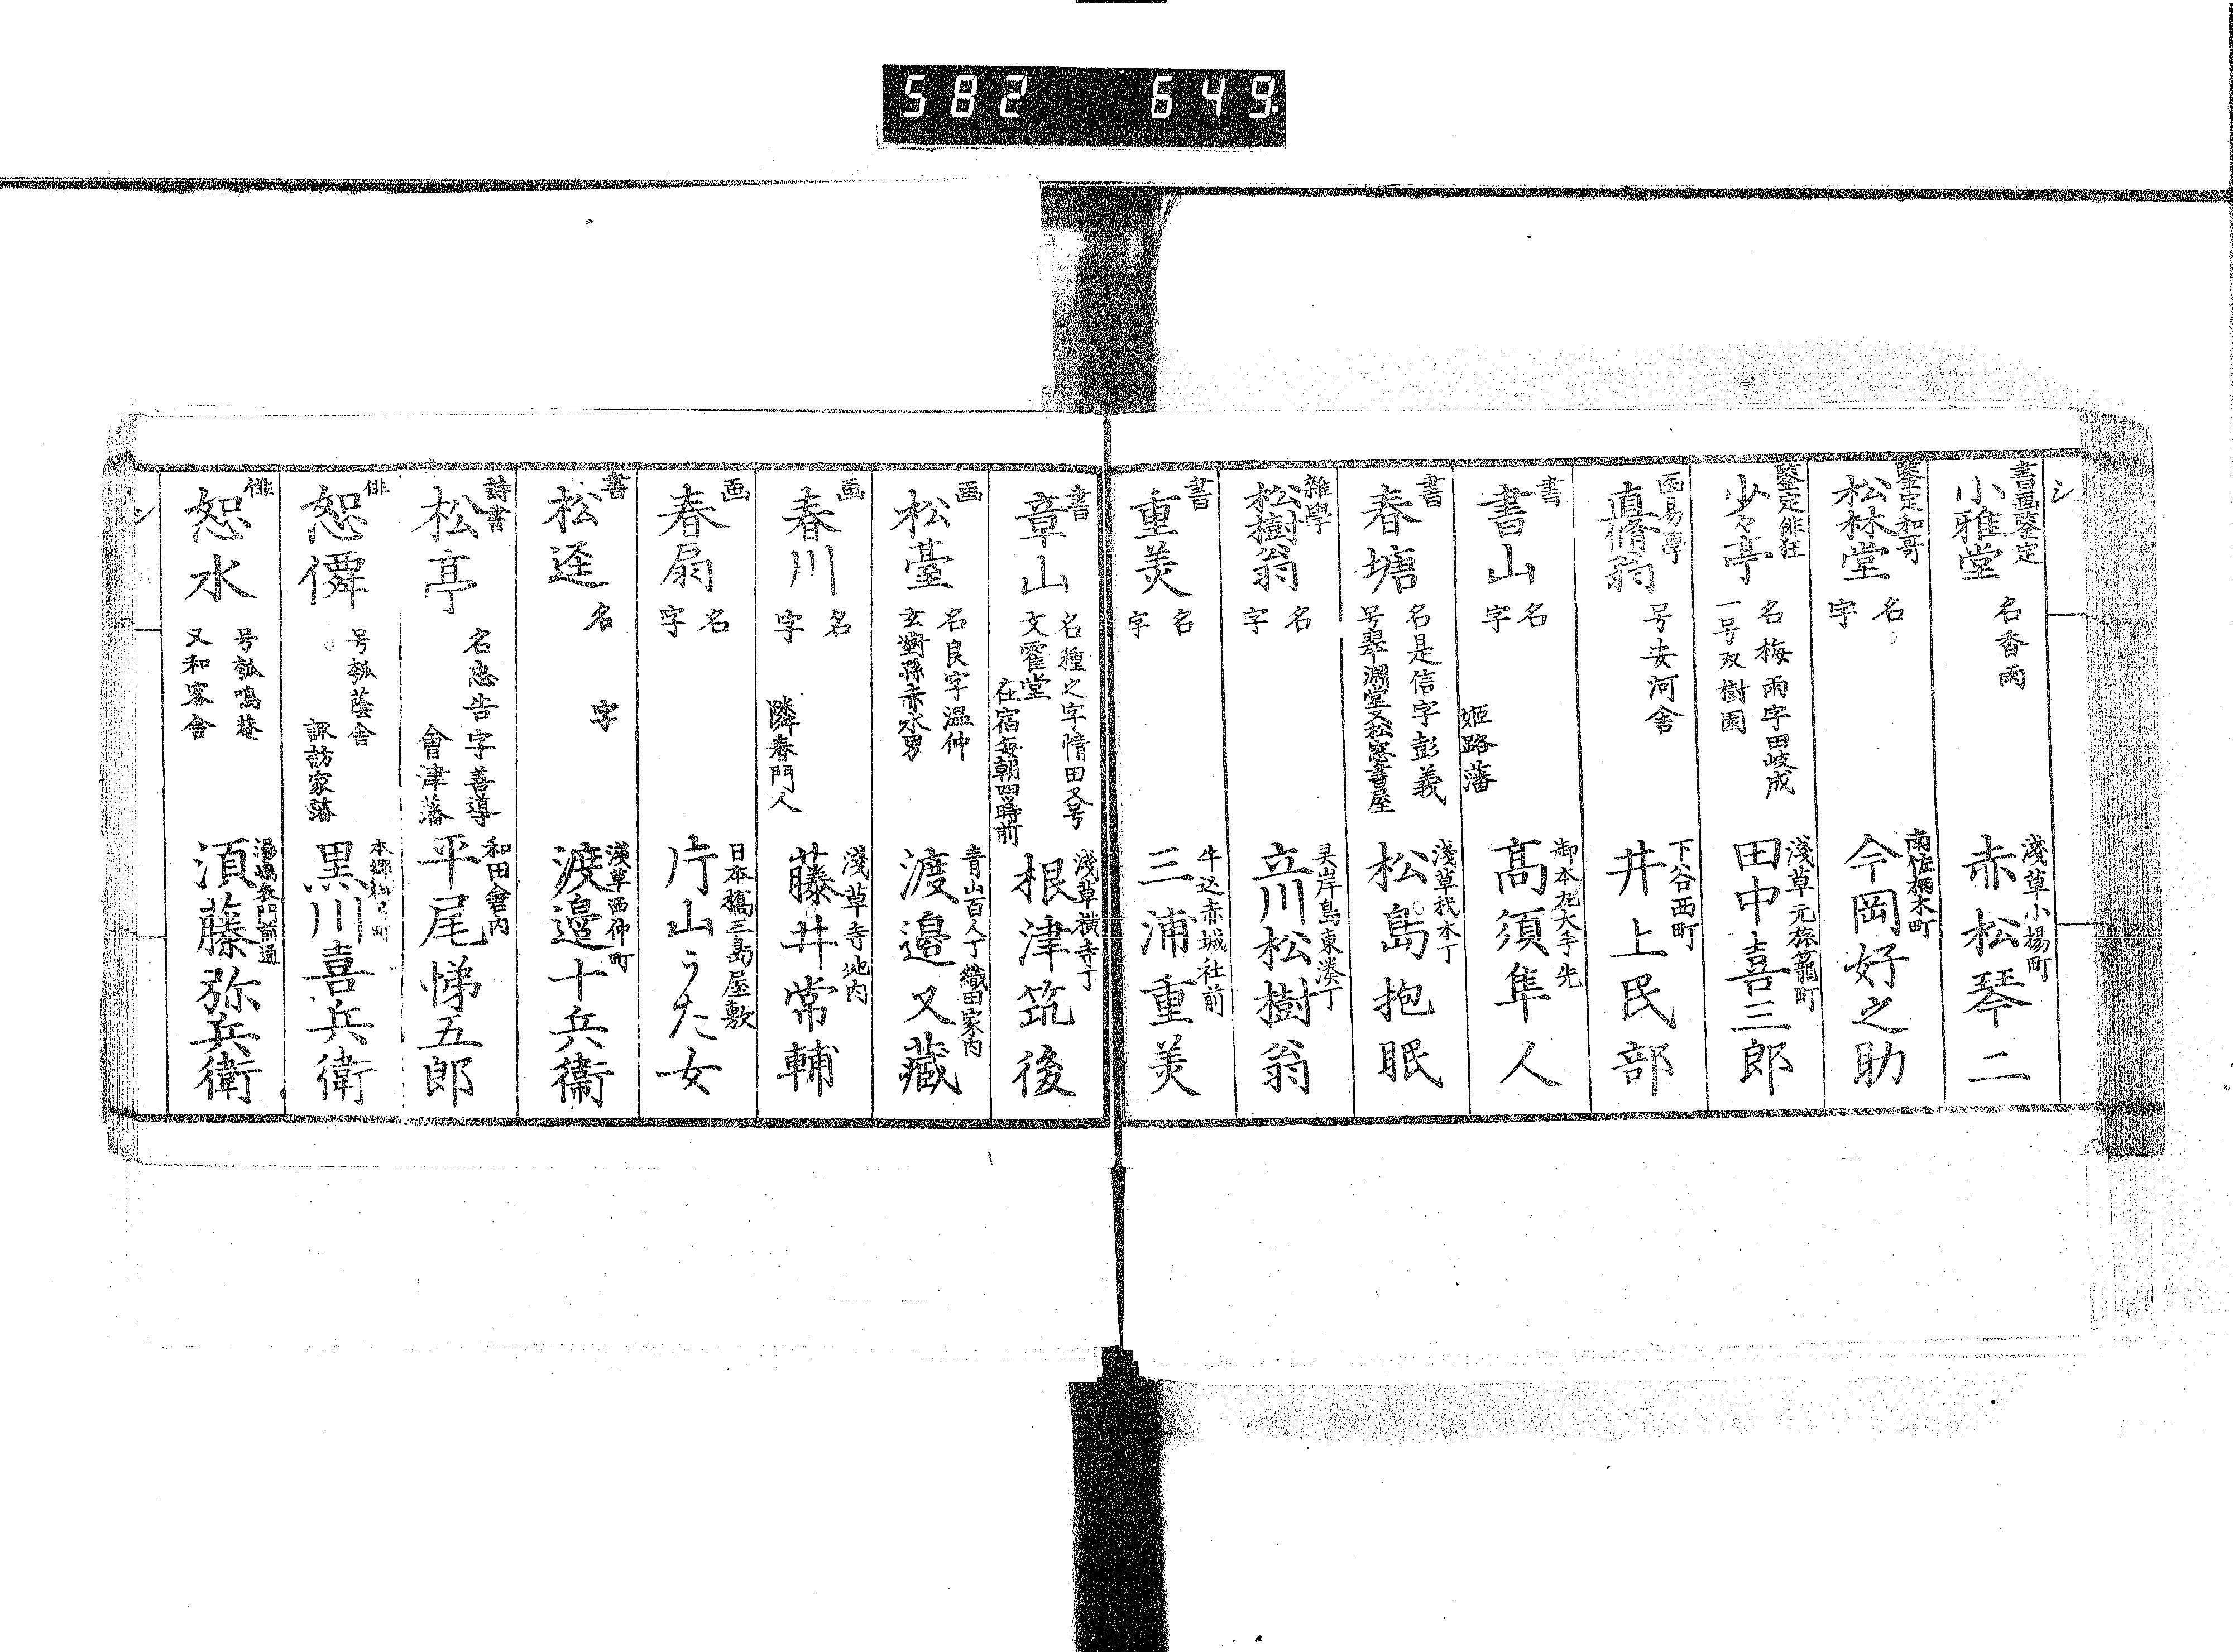 582 649.
シ
書画鑒定
小雅堂
名香雨
淺草小揚町
赤松琴二
鑒定和哥
松林堂
名
字
南佐柄木町
今岡好之助
鑒定俳狂
少々亭
名梅雨字田岐成
一号双樹園
淺草元旅籠町
田中喜三郎
医易學
直脩翁
号安河舎
下谷西町
井上民部
書
書山
名
字
姫路藩
御本丸大手先
髙須隼人
書
春塘
名是信字彭義
号翠淵堂又松窓書屋
淺草材木丁
松島抱眠
雜學
松樹翁
名
字
灵岸島東湊丁
立川松樹翁
書
重美
名
字
牛込赤城社前
三浦重美
書
章山
名種之字情田又号
文霍堂
在宿每朝四時前
淺草橫寺丁
根津筑後
画
松臺
名良字温仲
玄對孫赤水男
青山百人丁織田家内
渡邉又藏
画
春川
名
字
隣春門人
淺草寺地内
藤井常輔
画
春扇
名
字
日本橋三島屋敷
片山うた女
書
松逕
名
字
淺草西仲町
渡邉十兵衞
詩書
松亭
名忠告字善導
會津藩
和田倉内
平尾悌五郎
俳
恕僲
号瓠蔭舎
諏訪家藩
本郷
黒川喜兵衛
俳
恕水
号瓠鳴菴
又和容舎
湯嶋表門前通
須藤弥兵衛
シ